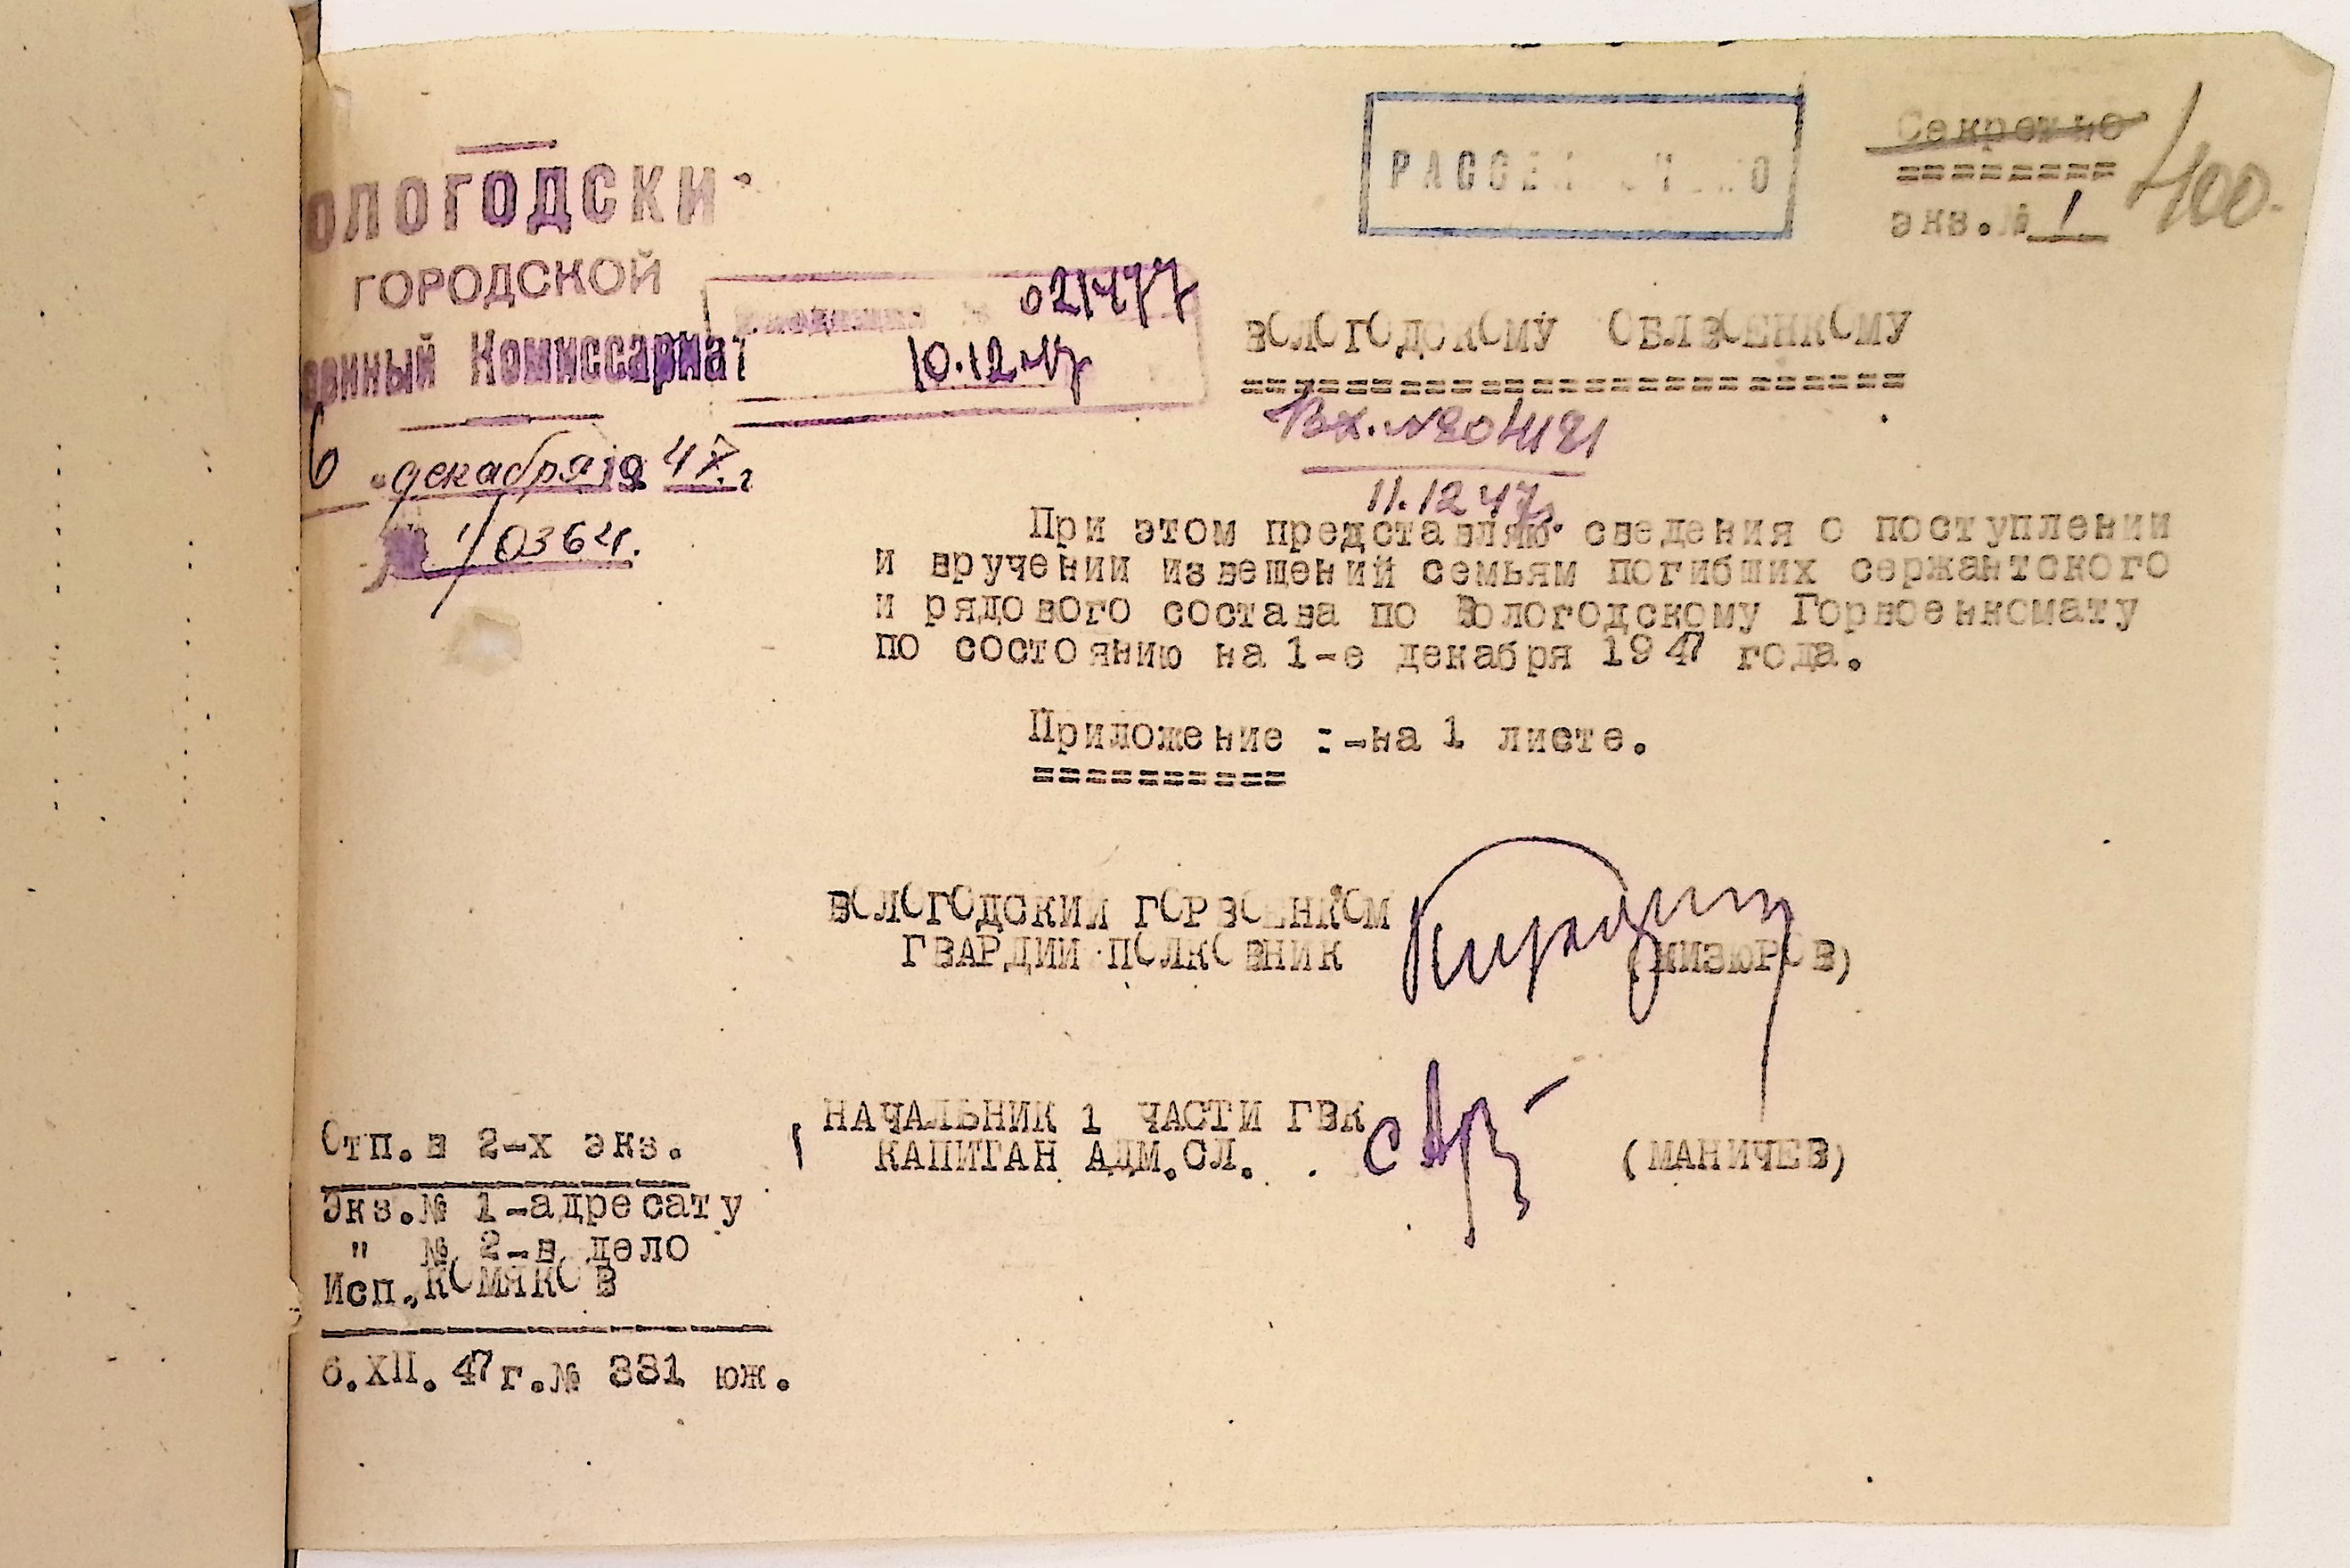 ологодски
городской
оенный Комиссариат
6 декабря 19 47 г.
1/0364.
021477
10.12.47
РАССЕ
Секретно
экз.№ 1
400.
ВОЛОГОДСКОМУ ОБЛВОЕНКОМУ
Вх. №
11.12 47г.
При этом представляю сведения о поступлении
и вручении извещений семьям погибших сержантского
и рядового состава по Вологодскому Горвоенкомату
по состоянию на 1-е декабря 1947 года.
Приложение :-на 1 листе.
ВОЛОГОДСКИЙ ГОРВОЕНКОМ
ГВАРДИИ ПОЛКОВНИК (МИЗЮРОВ)
НАЧАЛЬНИК 1 ЧАСТИ ГВК
КАПИТАН АДМ.СЛ. (МАНИЧЕВ)
Отп.в 2-х экз.
Экз.№ 1-адресату
" № 2-в дело
Исп.КОМЯКОВ
6.XII.47г.№ 331 юж.